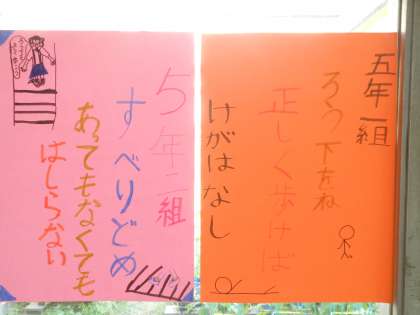 五年一組
ろう下をね
正しく歩けば
けがはなし
5年二組
すべりどめ
あってもなくても
はしらない